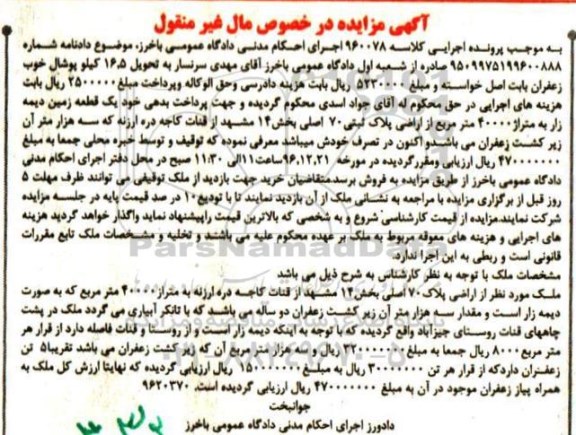 آگهی مزایده در خصوص مال غیر منقول
به موجب پرونده اجرایی کلاسه ۹۶۰۰۷۸ اجرای احکام مدنی دادگاه عمومی باخرز، موضوع دادنامه شماره
۹۵۰۹۹۷۵۱۹۹۶۰۰۸۸۸ صادره از شعبه اول دادگاه عمومی باخرز آقای مهدی سرنسار به تحویل ۱۶.۵ کیلو پوشال خوب
زعفران بابت اصل خواسته و مبلغ ۵۲۳۰۰۰۰ ریال بابت هزینه دادرسی وحق الوکاله وپرداخت مبلغ ۲۵۰۰۰۰۰ ریال بابت
هزینه های اجرایی در حق محکوم له آقای جواد اسدی محکوم گردیده و جهت پرداخت بدهی خود یک قطعه زمین دیمه
زار به متراژ ۴۰۰۰۰ متر مربع از اراضی پلاک ثبتی ۷۰ اصلی بخش ۱۴ مشهد از قنات کاجه دره ارزنه که سه هزار متر آن
زیر کشت زعفران می باشدو اکنون در تصرف خودش میباشد معرفی نموده که توقیف و توسط خبره محلی جمعا به مبلغ
۴۷۰۰۰۰۰۰۰ ریال ارزیابی ومقررگردیده در مورخه ۹۶.۱۲.۲۱ ساعت ۱۱ الی ۱۱:۳۰ صبح در محل دفتر اجرای احکام مدنی
دادگاه عمومی باخرز از طریق مزایده به فروش برسد.متقاضیان خرید جهت بازدید از ملک توقیفی می توانند ظرف مهلت ۵
روز قبل از برگزاری مزایده با مراجعه به نشانی ملک از آن بازدید نمایند تا با تودیع ۱۰ در صد قیمت پایه در جلسه مزایده
شرکت نمایند.مزایده از قیمت کارشناسی شروع و به شخصی که بالاترین قیمت راپیشنهاد نماید واگذار خواهد گردید هزینه
های اجرایی و هزینه های معوقه مربوط به ملک بر عهده محکوم علیه می باشند و تخلیه و مشخصات ملک تابع مقررات
قانونی است و ربطی به این اجرا ندارد.
مشخصات ملک با توجه به نظر کارشناس به شرح ذیل می باشد
ملک مورد نظر از اراضی پلاک ۷۰ اصلی بخش ۱۴ مشهد از قنات کاجه دره ارزنه به متراژ ۴۰۰۰۰ متر مربع که به صورت
دیمه زار است و مقدار سه هزار متر آن زیر کشت زعفران دو ساله می باشد که با تانکر آبیاری می گردد ملک در پشت
چاههای قنات روستای جیزآباد واقع گردیده که با توجه به اینکه دیمه زار است و از روستا و قنات فاصله دارد از قرار هر
متر مربع ۸۰۰۰ ریال جمعا به مبلغ ۳۲۰۰۰۰۰۰۰ ریال و سه هزار متر مربع آن که زیر کشت زعفران می باشد تقریبا ۵ تن
زعفران داردکه از قرار هر تن ۳۰۰۰۰۰۰۰ ریال به مبلغ ۱۵۰۰۰۰۰۰۰ ریال ارزیابی گردیده که نهایتا ارزش کل ملک به
همراه پیاز زعفران موجود در آن به مبلغ ۴۷۰۰۰۰۰۰۰ ریال ارزیابی گردیده است. ۹۶۲۰۳۷۰
جوانبخت
دادورز اجرای احکام مدنی دادگاه عمومی باخرز
ParsNamadData